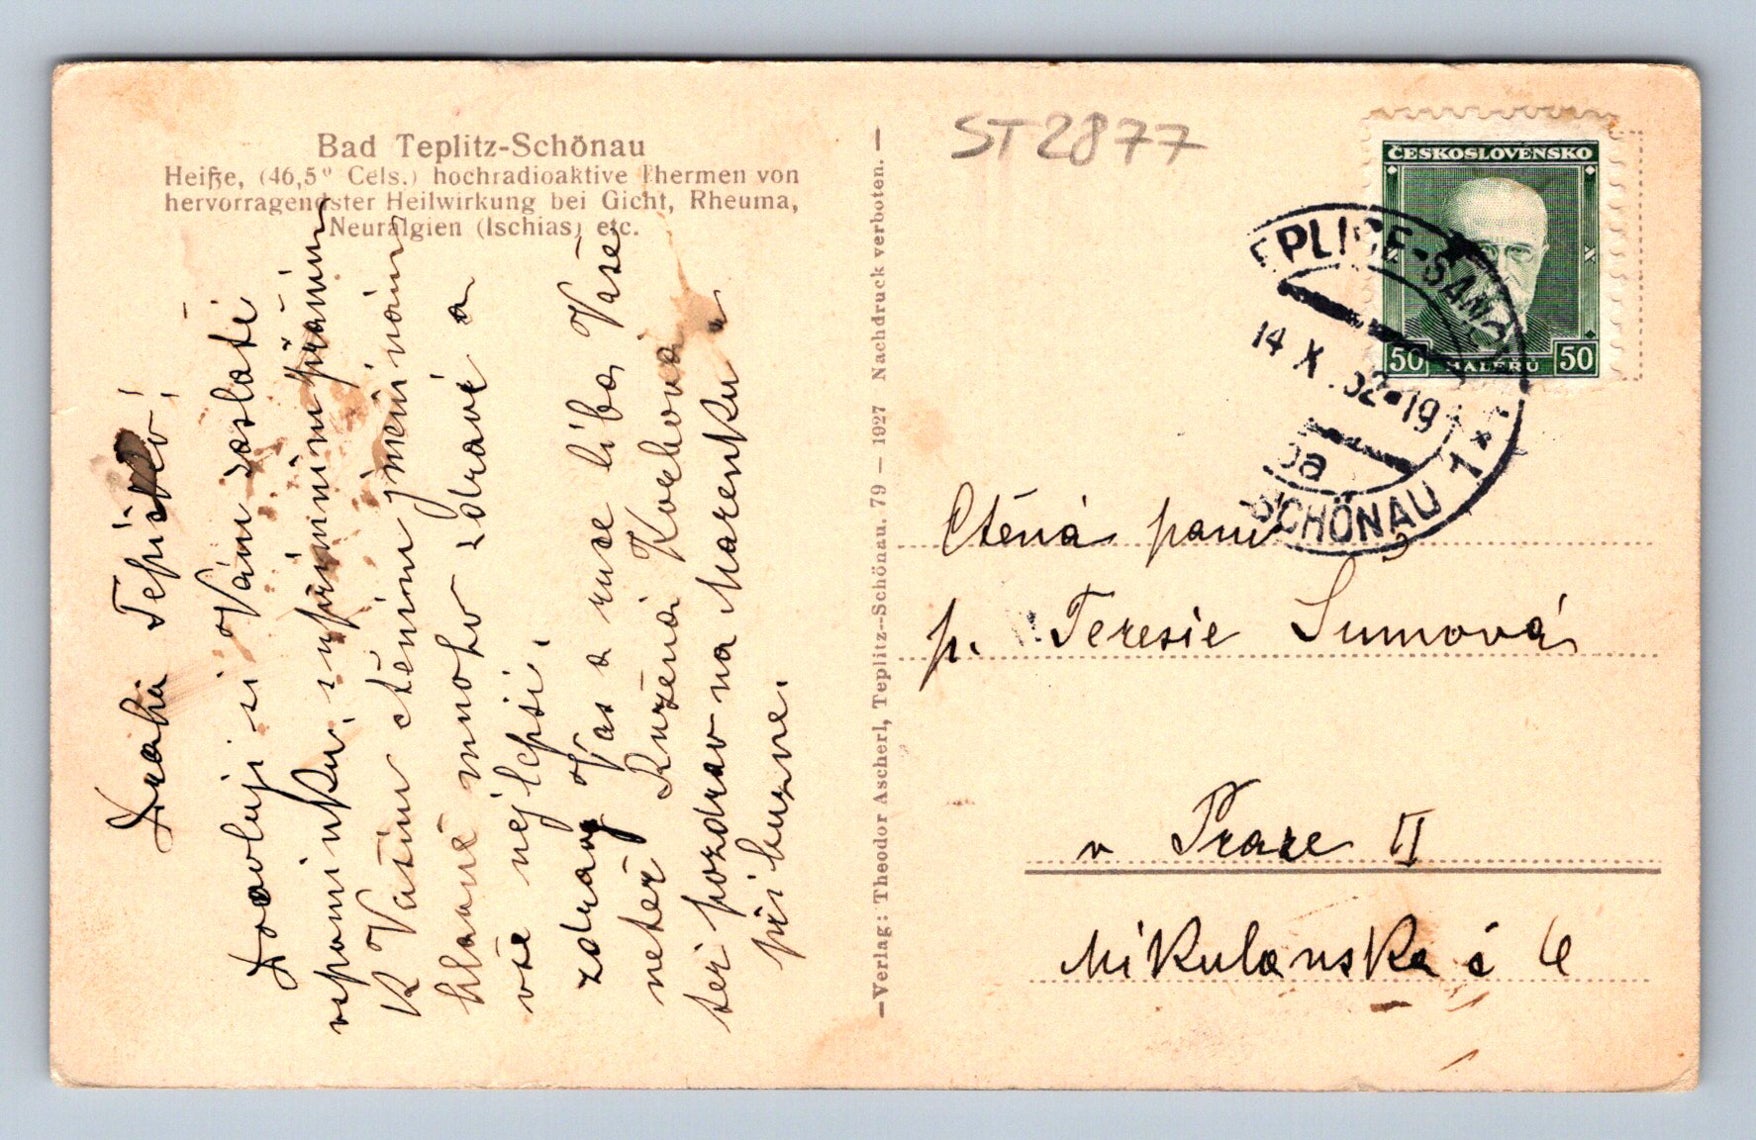 Bad Teplitz-Schönau
Heiße, (46,5° Cels.) hochradioaktive Thermen von
hervorragendster Heilwirkung bei Gicht, Rheuma,
Neuralgien (Ischias) etc.
Drahá
Dovoluji si Vám zaslati
vspomínku, s upřímním přáním
K Vašim ctěním jmeninám
hlavně mnoho zdraví a
vše nejlepší.
zdraví Vás a ruce líbá Vaše
neteř Růžena
též pozdrav na Marenku
příbuzne.
—Verlag: Theodor Ascherl, Teplitz-Schönau. 79 — 1927 Nachdruck verboten. —
ST2877
ČESKOSLOVENSKO
50 HALÉŘŮ 50
EPLICE-ŠANO
14 X .32-19
SCHÖNAU 1
Ctěná paní
p. Teresie Šumová
v Praze II
Mikulanska č 6